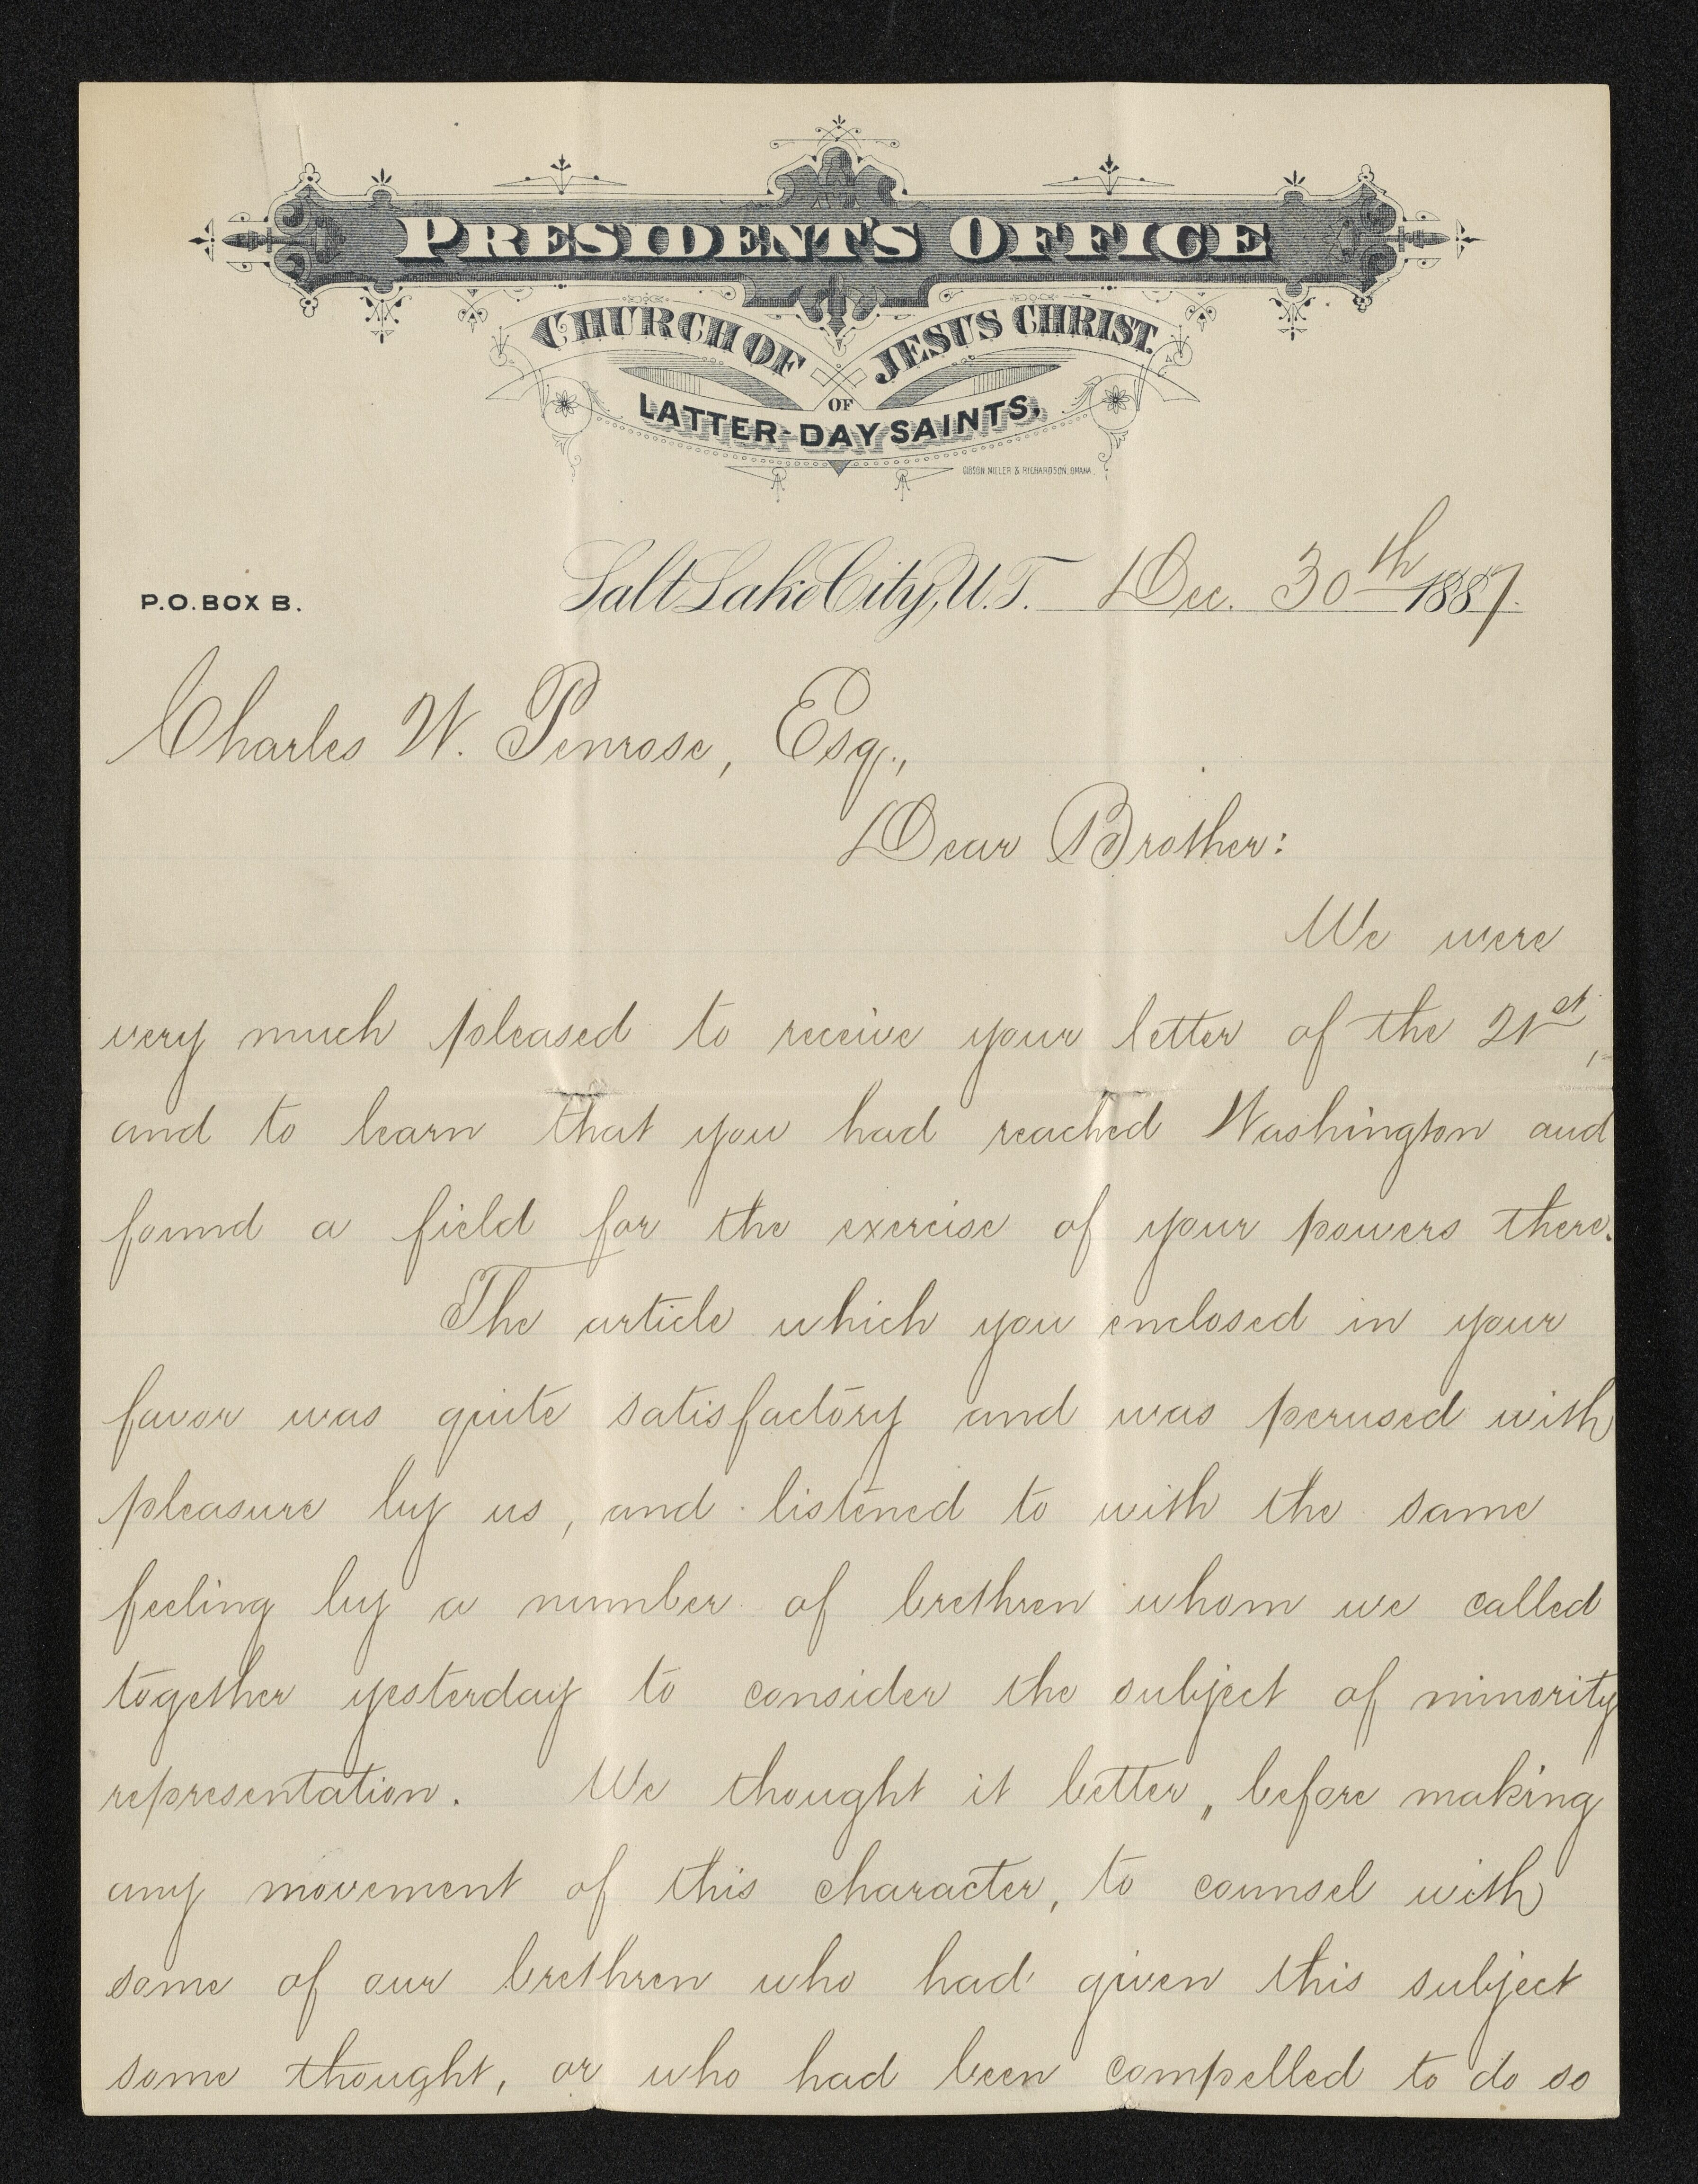 PRESIDENT'S OFFICE
CHURCH OF JESUS CHRIST
OF
LATTER-DAY SAINTS.
GIBSON, MILLER & RICHARDSON, OMAHA.
P.O. BOX B.
Salt Lake City, U.T. Dec. 30th 1887.
Charles W. Penrose, Esq.,
Dear Brother:
We were
very much pleased to receive your letter of the 21st,
and to learn that you had reached Washington and
found a field for the exercise of your powers there.
The article which you enclosed in your
favor was quite satisfactory and was perused with
pleasure by us, and listened to with the same
feeling by a number of brethren whom we called
together yesterday to consider the subject of minority
representation. We thought it better, before making
any movement of this character, to counsel with
some of our brethren who had given this subject
some thought, or who had been compelled to do so